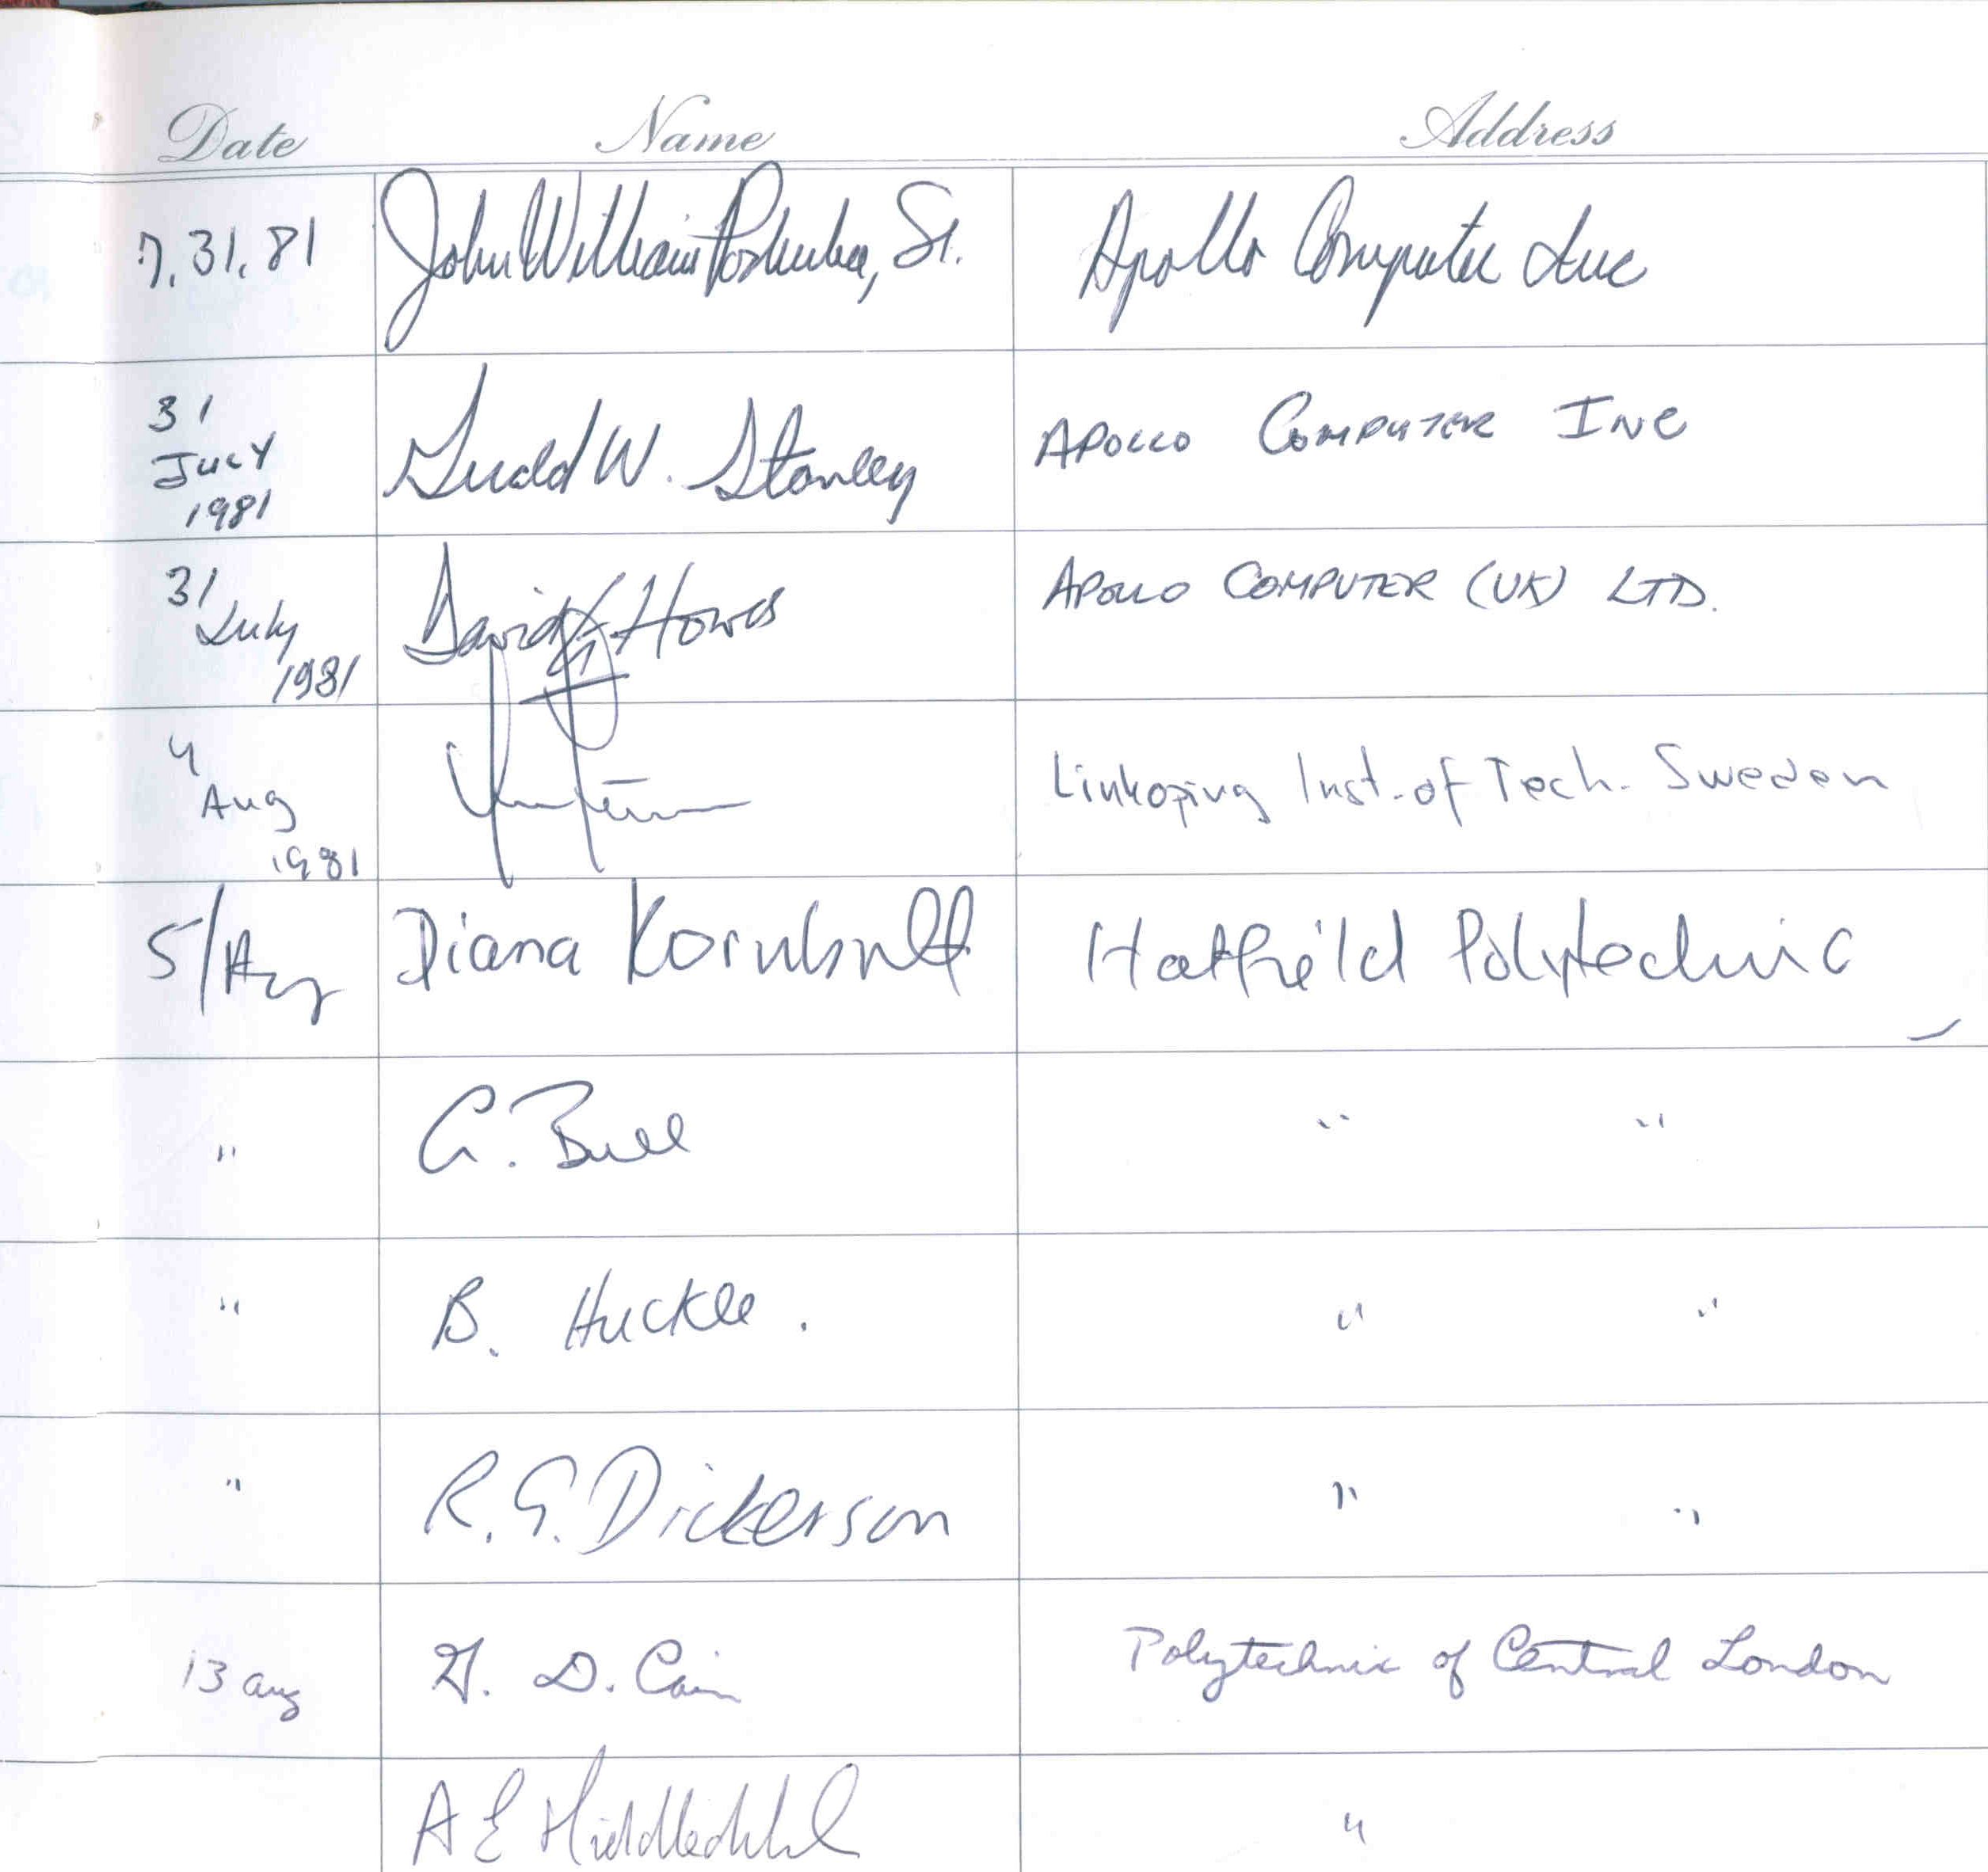 Date Name Address
7.31.81 John William Poduska, Sr. Apollo Computer Inc
31 July 1981 W. Stanley APOLLO COMPUTER INC
31 July 1981 David G Howes APOLLO COMPUTER (UK) LTD.
4 Aug 1981 Linkoping Inst. of Tech. Sweden
5/Aug Diana Hatfield Polytechnic
" G. Bull " "
" B. Huckle. " "
" R.G. Dickerson " "
13 aug G. D. Cain Polytechnic of Central London
A E "